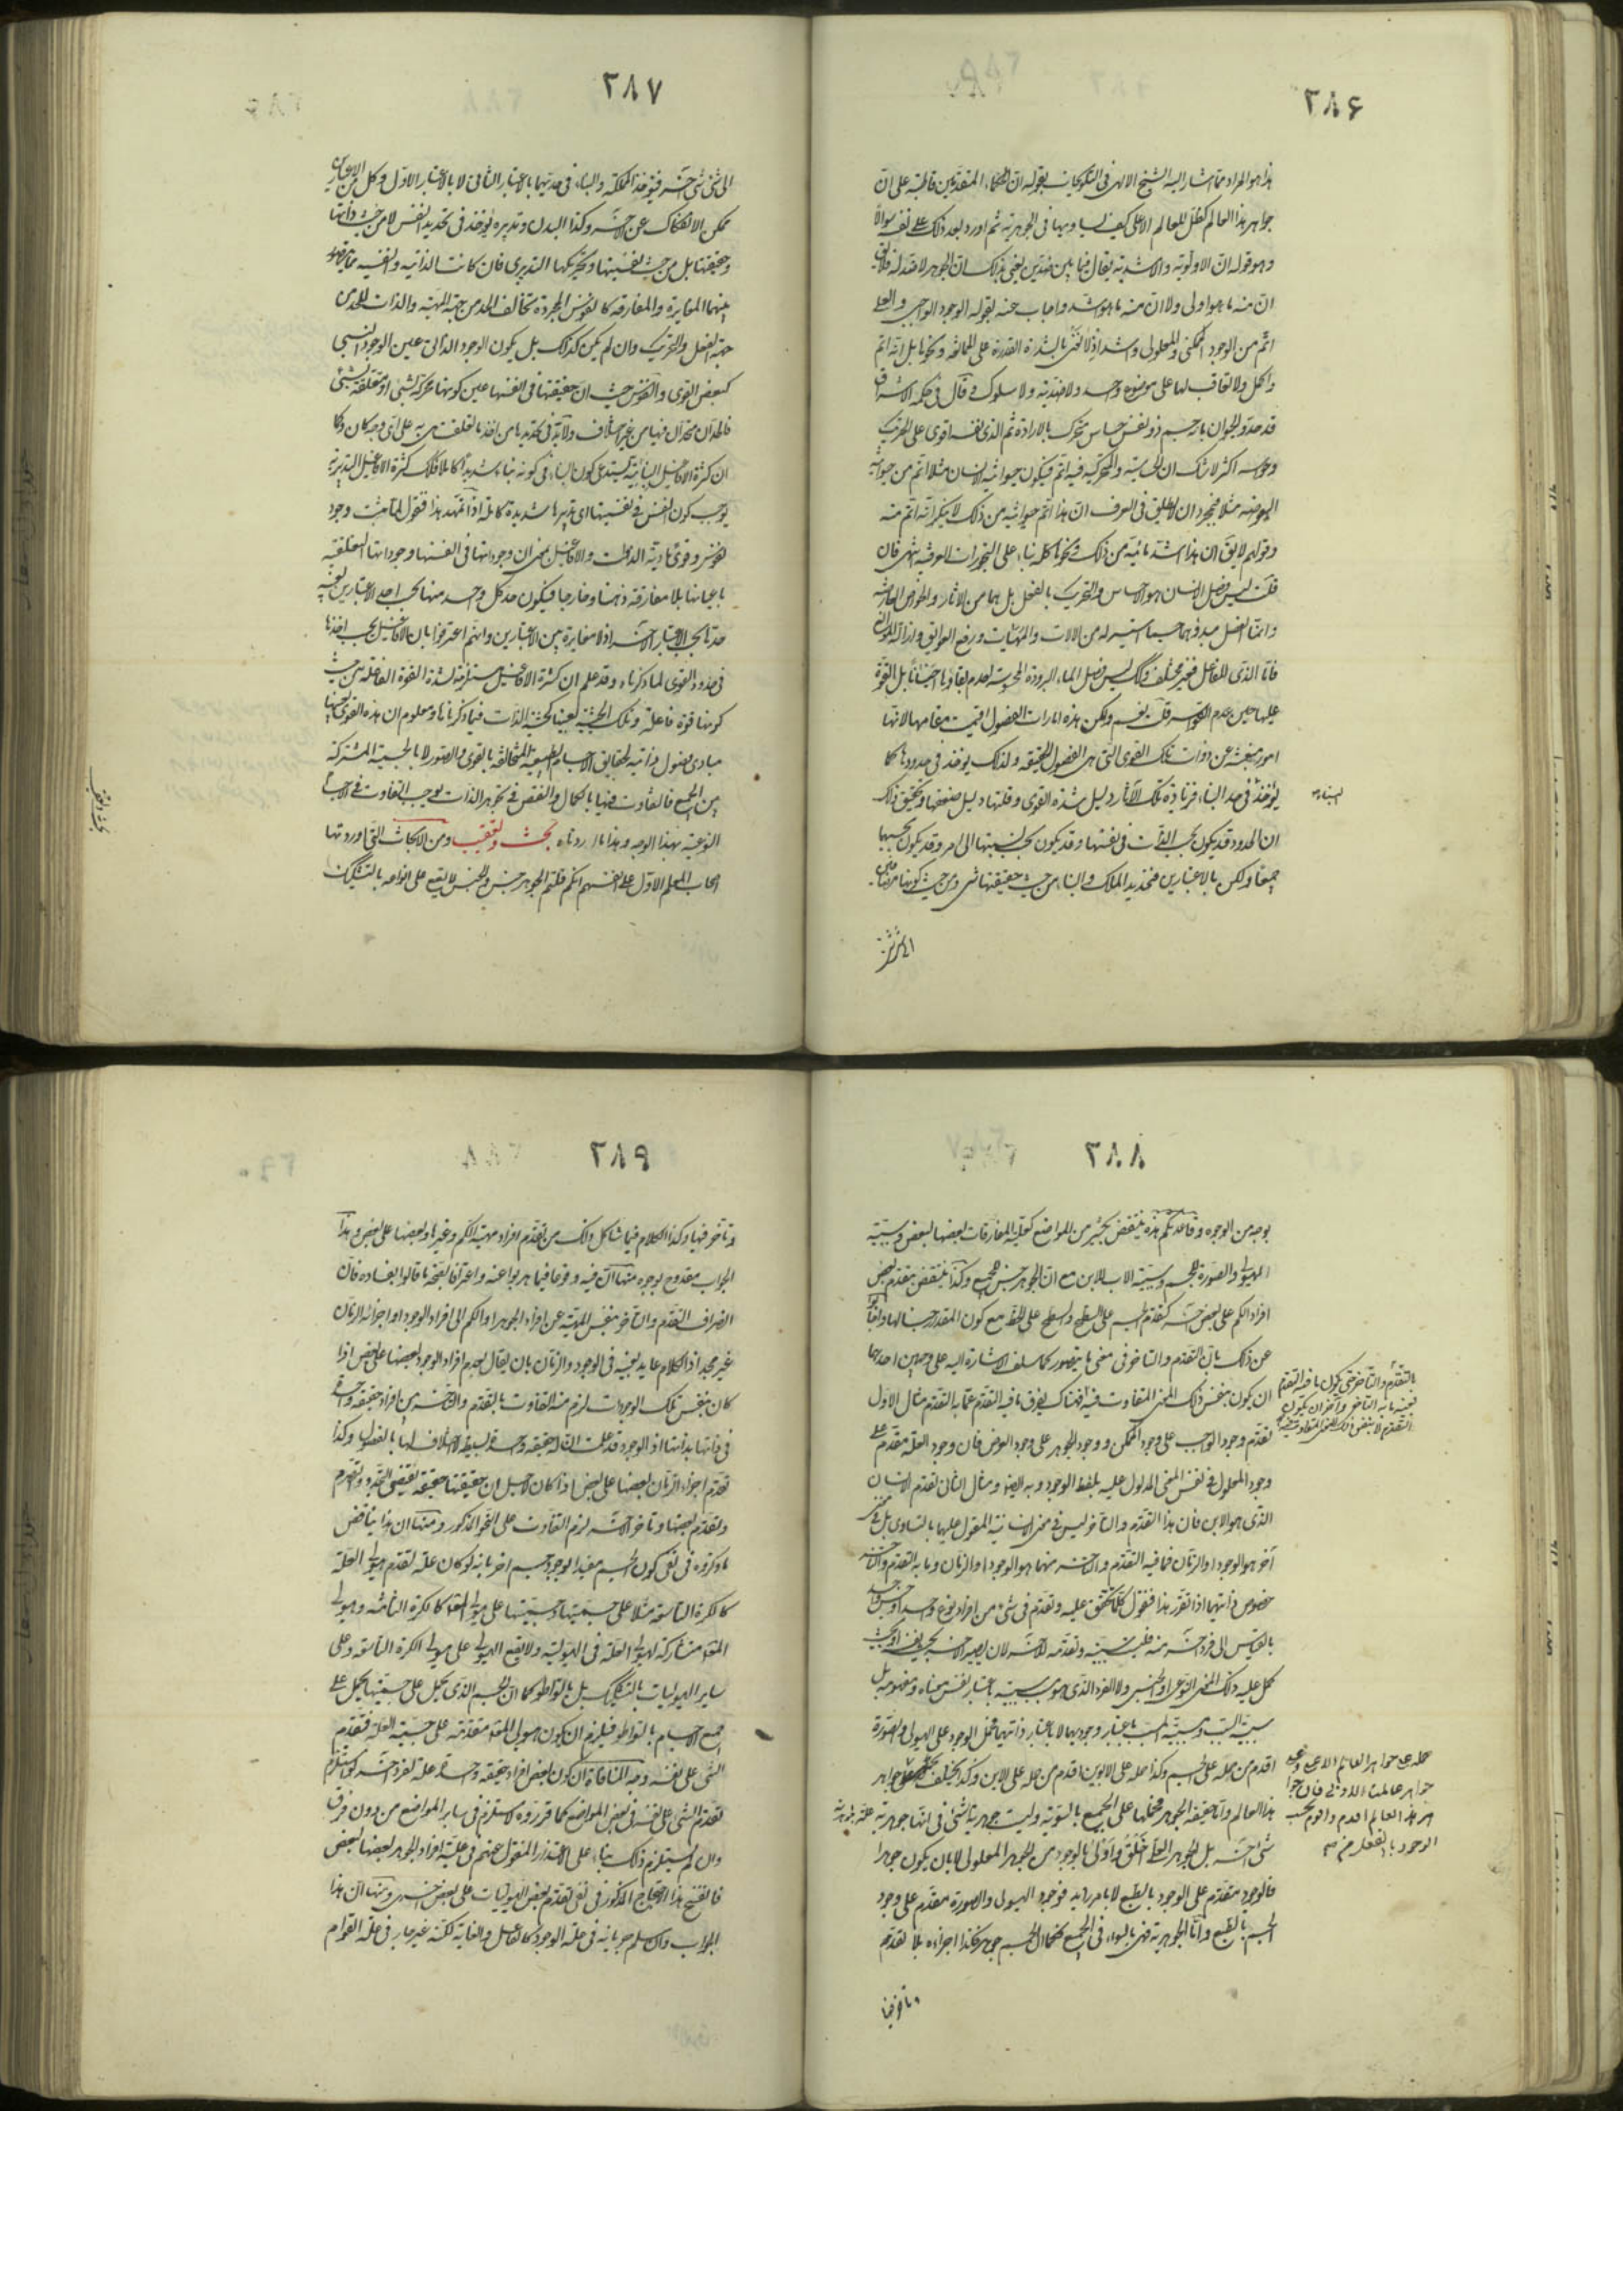 ٢٨۶
هذا هو المراد مما اشار اليه الشيخ الالهى فى التلويحات بقوله ان الحكماء المتقدمين قاطبة على ان
جواهر هذا العالم كظل للعالم الاعلى كيف يساويها فى الجوهرية ثم اورد بعد ذلك على نفسه سؤالا
وهو قوله ان الاولوية والاشدية يقال فيما بين ضدين يعنى بذلك ان الجوهر لا ضد له فلا يق
ان منه ما هو اولى ولا ان منه ما هو اشد واجاب عنه بقوله الوجود الواجبى والعلى
اتم من الوجود الممكنى والمعلولى واشد اذ لا نعنى بالشدة القدرة على الممانعة ونحوها بل انه اتم
واكمل ولا تعاقب لها على موضوع واحد ولا ضدية ولا سلوك وقال فى حكمة الاشراق
قد حد والحيوان بانه جسم ذو نفس حساس متحرك بالارادة ثم الذى نفسه اقوى على التحريك
وحواسه اكثر لا شك ان الحساسية والمتحركية فيه اتم فيكون حيوانية الانسان مثلا اتم من حيوانية
البعوضة مثلا فبمجرد ان لا يطلق فى العرف ان هذا اتم حيوانية من ذلك لا ينكر انه اتم منه
وقولهم لا يق ان هذا اشد مائية من ذلك ونحوها كله بناء على التجوزات العرفية انتهى فان
قلت ليس فصل الانسان هو الاحساس والتحريك بالفعل بل هما من الاثار والخواص العارضة
وانما الفصل مبدؤهما حسبما استيسر له من الالات والمهيات ورفع العوايق وازالة الموانع
فاما الذى للفاعل فغير مختلف وكك ليس فصل الماء البرودة المحسوسة لعدم بقاؤها احيانا بل القوة
عليها حين عدم القواسر قلت نعم ولكن هذه امارات الفصول اقيمت مقامها لانها
امور منبعثة عن ذوات تلك القوى التى هى الفصول الحقيقة ولذلك يوخذ فى حدودها كما
يؤخذ فى حد البناء فزيادة تلك الآثار دليل شدة القوى وقلتها دليل ضعفها وتحقيق ذلك
البناء
ان الحدود قد يكون بحسب الذات فى نفسها وقد يكون بحسب نسبتها الى امر وقد يكون بحسبهما
جميعا ولكن بالاعتبارين فتحديد الملك والبناء من حيث حقيقتها شى ومن حيث كونها مضافين
٢٨٧
الى شى شى آخر فيؤخذ المملكة والبناء فى حديهما بالاعتبار الثانى لا بالاعتبار الاول وكل من الاعتبارين
ممكن الانفكاك عن الآخر وكذا البدن وتدبيره يؤخذ فى تحديد النفس لا من حيث ذاتها
وحقيقتها بل من حيث نفسيتها وتحريكها التدبيرى فان كانت الذاتية والنفسية مما يتصور
بينهما المغايرة والمفارقة كالنفوس المجردة تخالف الحد من جهة المهية والذات للحد من
جهة الفعل والتحريك وان لم يكن كذلك بل يكون الوجود الذاتى عين الوجود النسبى
كبعض القوى والنفوس حيث ان حقيقتها فى انفسها عين كونها محركة لشىء او متعلقة بشىء
فالحدان متحدان فيها من غير اختلاف ولا بد فى تحديدها من اخذ ما تعلقت به على اى وجه كان وكما
ان كثرة الافاعيل البنائية يستدعى كون البناء فى كونه بناء شديدا كاملا فكك كثرة الافاعيل التدبيرية
يوجب كون النفس فى نفسيتها اى تدبيرها شديدة كاملة اذا تمهد هذا فنقول لما ثبت وجود
نفوس وقوى مادية الذات والافاعيل بمعنى ان وجوداتها فى انفسها وجوداتها التعلقية
باعيانها بلا مفارقة ذهنا وخارجا فيكون حد كل واحد منها بحسب احد الاعتبارين بعينه
حدها بحسب الاعتبار الآخر اذ لا مغايرة بين الاعتبارين وانهم اعترفوا بان الافاعيل يجب اخذها
فى حدود القوى لما ذكرناه وقد علم ان كثرة الافاعيل مستلزمة لشدة القوة الفاعلة من حيث
كونها قوة فاعلة وتلك الحيثية بعينها حيثية الذات فيما ذكرناها ومعلوم ان هذه القوى بعينها
مبادى فصول ذاتية لحقايق الاجسام الطبيعية المتخالفة بالقوى والصور لا بالجسمية المشتركة
بين الجميع فالتفاوت فيها بالكمال والنقص فى تجوهر الذات يوجب التفاوت فى الاجسام
النوعية بهذا الوجه وهذا ما اردناه بحث وتعقيب ومن الابحاث التى اوردتها
اصحاب المعلم الاول على انفسهم انكم قلتم الجوهر جنس والجنس لا يقع على انواعه بالتشكيك
٢٨٨
بوجه من الوجوه وقاعدتكم هذه ينتقض بكثير من المواضع كعلية المفارقات بعضها لبعض وسببية
الهيولى والصورة للجسم وسببية الاب للابن مع ان الجوهر جنس للجميع وكذا ينتقض بتقدم بعض
افراد الكم على بعض آخر كتقدم الجسم على السطح والسطح على الخط مع كون المقدار جنسا لها واجابوا
عن ذلك بان التقدم والتاخر فى معنى ما يتصور كما سلف الاشارة اليه على وجهين احدهما
ان يكون بنفس ذلك المعنى المتفاوت فيه فهناك يفرق ما فيه التقدم عما به التقدم مثال الاول
تقدم وجود الواجب على وجود الممكن ووجود الجوهر على وجود العرض فان وجود العلة مقدم على
وجود المعلول فى نفس المعنى المدلول عليه بلفظ الوجود وبه ايضا ومثال الثانى تقدم الانسان
الذى هو الاب فان هذا التقدم والتاخر ليس فى معنى الانسانية المقول عليهما بالتساوى بل فى معنى
آخر هو الوجود او الزمان فما فيه التقدم والتاخر منهما هو الوجود او الزمان وما به التقدم والتاخر
خصوص ذاتيهما اذا تقرر هذا فنقول كلما تحقق علية وتقدم فى شىء من افراد نوع واحد او جنس واحد
بالقياس الى فرد آخر منه فليست سببيته وتقدمه للآخر لان يصير الآخر بحيث يصدق او يجب
يحمل عليه ذلك المعنى النوعى او الجنسى ولا الفرد الذى هو سبب سببيته باعتبار نفس معناه ومفهومه بل
سببية السبب ومسببية المسبب باعتبار وجوديهما لا باعتبار ذاتيهما فحمل الوجود على الهيولى والصورة
اقدم من حمله على الجسم وكذا حمله على الابوين اقدم من حمله على الابن وكذا يختلف جواهر
هذا العالم واما حقيقة الجوهر فحملها على الجميع بالسوية وليست جوهرية شىء فى انها جوهرية علة لجوهرية
شىء آخر بل الجوهر العلى اخلق واولى بالوجود من الجوهر المعلولى لا بان يكون جوهرا
فالوجود متقدم على الوجود بالطبع لا بامر زايد فوجود الهيولى والصورة متقدم على وجود
الجسم بالطبع واما الجوهرية فهى بالسواء فى الجميع فكما ان الجسم جوهر فكذا اجزاءه بلا تقدم
وتاخر فيها
٢٨٩
وتأخر فيها وكذا الكلام فيما شاكل ذلك من تقدم افراد مهية الكم وغيرها وبعضها على بعض وهذا
الجواب مقدوح بوجوه منها ان فيه وقوعا فيما هربوا عنه واعترافا بصحة ما قالوا بفساده فان
انصراف التقدم والتاخر بنفس المهية عن افراد الجوهر او الكم الى افراد الوجود او اجزاء الزمان
غير مجد اذ الكلام عايد بعينه فى الوجود والزمان بان يقال تقدم افراد الوجود بعضها على بعض اذا
كان بنفس تلك الوجودات لزم منه التفاوت بالتقدم والتاخر بين افراد حقيقة واحدة
فى ذاتها بذاتها اذ الوجود قد علمت ان له حقيقة واحدة بسيطة لا اختلاف لها بالفصول وكذا
تقدم اجزاء الزمان بعضها على بعض اذا كان لاجل ان حقيقتها حقيقة تقتضى التجدد والتصرم
وتقدم بعضها وتاخر الآخر لزم التفاوت على النحو المذكور ومنها ان هذا يناقض
ما ذكروه فى نفى كون الجسم مفيدا لوجود جسم آخر بانه لو كان علة لتقدم هيولى العلة
كالكرة التاسعة مثلا على جسميتها وجسميتها على هيولى المعلول كالكرة الثامنة وهيولى
المعلول مشاركة لهيولى العلة فى الهيولية ولا يقع الهيولى على هيولى الكرة التاسعة وعلى
ساير الهيوليات بالتشكيك بل بالتواطؤ كما ان الجسم الذى يحمل على جسميتها يحمل على
جميع الاجسام بالتواطؤ فيلزم ان يكون هيولى المعلول متقدمة على جسمية العلة فتقدم
الشى على نفسه وجه المنافاة ان كون بعض افراد حقيقة واحدة علة لفرد آخر لو استلزم
تقدم الشى على نفسه فى بعض المواضع كما قرروه لاستلزم فى ساير المواضع من دون فرق
وان لم يستلزم ذلك بناء على الاعتذار المنقول عنهم فى علية افراد الجوهر بعضها لبعض
فانفسخ هذا الاحتجاج المذكور فى نفى تقدم بعض الهيوليات على بعض اخرى ومنها ان هذا
الجواب وان سلم جريانه فى علة الوجود كالفاعل والغاية لكنه غير جار فى علة القوام